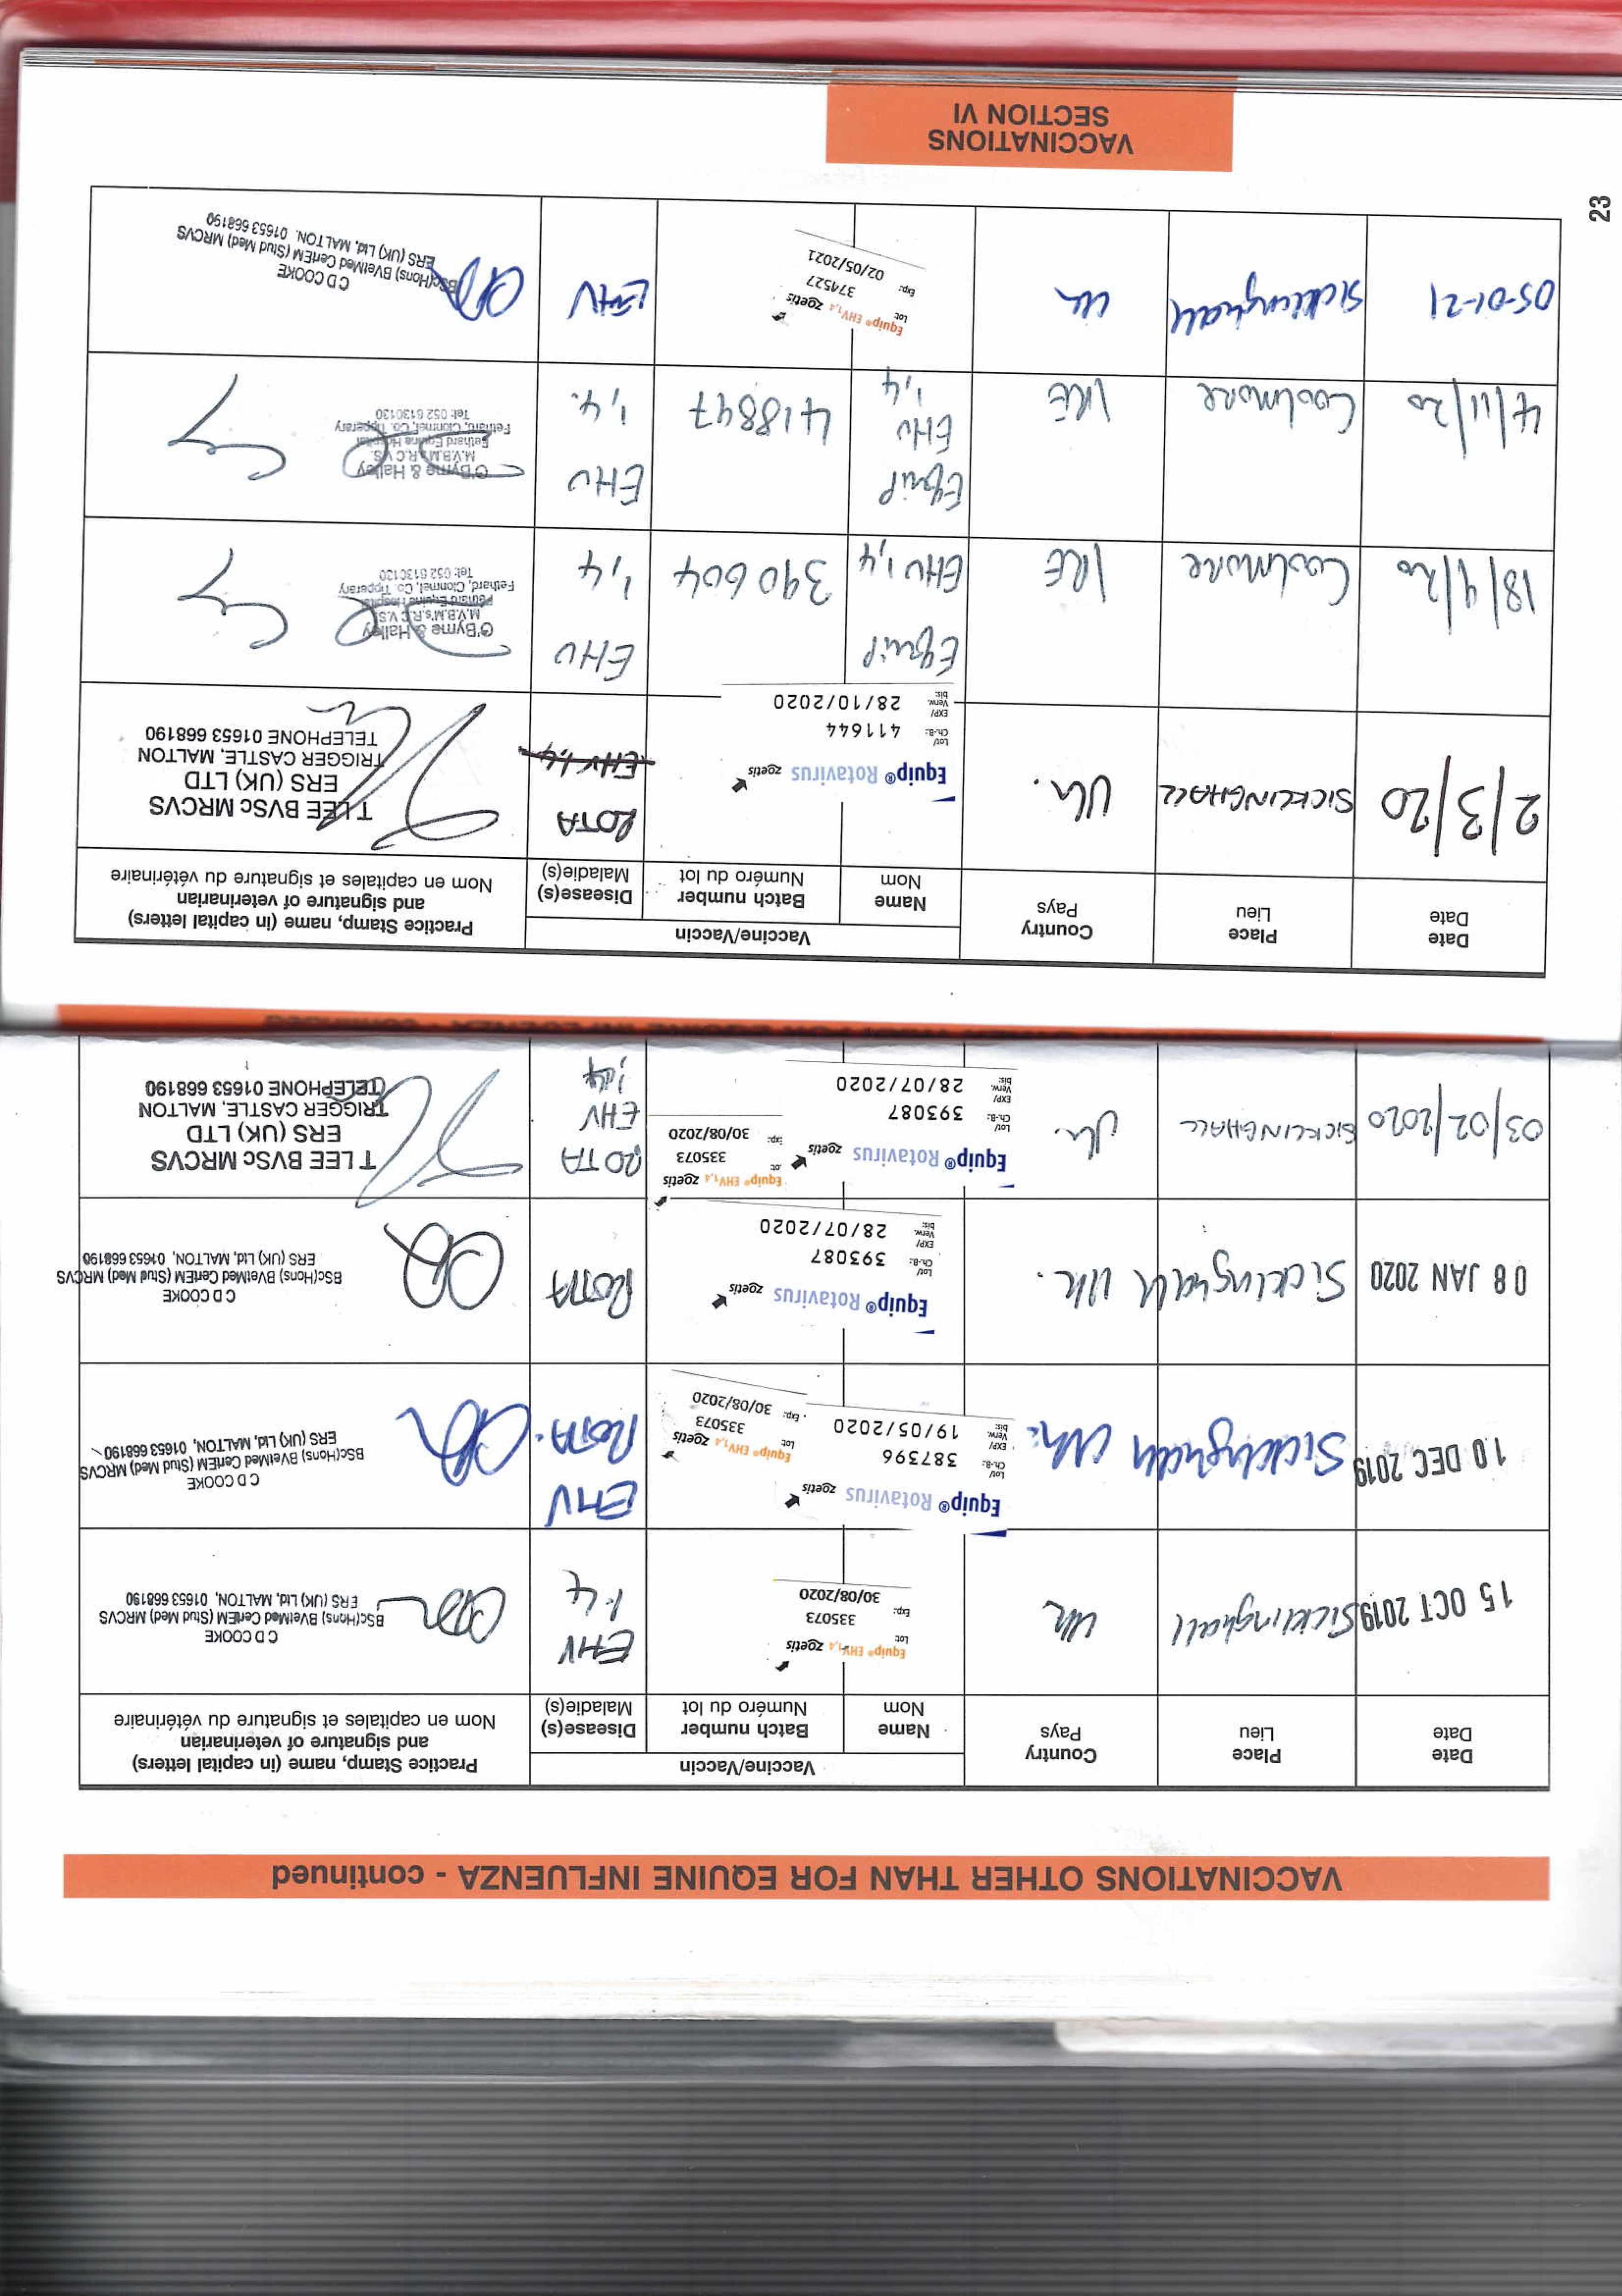 VACCINATIONS OTHER THAN FOR EQUINE INFLUENZA - continued
Date
Date
Place
Lieu
Country
Pays
Vaccine/Vaccin
Name
Nom
Batch number
Numéro du lot
Disease(s)
Maladie(s)
Practice Stamp, name (in capital letters)
and signature of veterinarian
Nom en capitales et signature du vétérinaire
15 OCT 2019
Sicklinghall
Uk
Equip® EHV1,4 zoetis
Lot: 335073
Exp: 30/08/2020
EHV
1.4
C D COOKE
BSc(Hons) BVetMed CertEM (Stud Med) MRCVS
ERS (UK) Ltd, MALTON, 01653 668190
10 DEC 2019
Sicklinghall
Uk.
Equip® Rotavirus zoetis
Lot/ Ch.-B.: 387396
EXP/ Verw. bis: 19/05/2020
Equip® EHV1,4 zoetis
Lot: 335073
Exp: 30/08/2020
EHV
ROTA.
C D COOKE
BSc(Hons) BVetMed CertEM (Stud Med) MRCVS
ERS (UK) Ltd, MALTON, 01653 668190
08 JAN 2020
Sicklinghall
Uk.
Equip® Rotavirus zoetis
Lot/ Ch.-B.: 393087
EXP/ Verw. bis: 28/07/2020
ROTA
C D COOKE
BSc(Hons) BVetMed CertEM (Stud Med) MRCVS
ERS (UK) Ltd, MALTON, 01653 668190
03/02/2020
SICKLINGHALL
Uk.
Equip® Rotavirus zoetis
Lot/ Ch.-B.: 393087
EXP/ Verw. bis: 28/07/2020
Equip® EHV1,4 zoetis
ot: 335073
Exp: 30/08/2020
ROTA
EHV
1,4
T LEE BVSc MRCVS
ERS (UK) LTD
TRIGGER CASTLE, MALTON
TELEPHONE 01653 668190
Date
Date
Place
Lieu
Country
Pays
Vaccine/Vaccin
Name
Nom
Batch number
Numéro du lot
Disease(s)
Maladie(s)
Practice Stamp, name (in capital letters)
and signature of veterinarian
Nom en capitales et signature du vétérinaire
2/3/20
SICKLINGHALL
Uk.
Equip® Rotavirus zoetis
Lot/ Ch.-B.: 411644
EXP/ Verw. bis: 28/10/2020
ROTA
EHV 1,4
T LEE BVSc MRCVS
ERS (UK) LTD
TRIGGER CASTLE, MALTON
TELEPHONE 01653 668190
18/9/20
Coolmore
IRE
Equip
EHV 1,4
390604
EHV
1,4
O'Byrne & Halley
M.V.B.M's.R.C.V.S.
Fethard Equine Hospital
Fethard, Clonmel, Co. Tipperary
Tel: 052 6130130
4/11/20
Coolmore
IRE
Equip
EHV
1,4
418847
EHV
1,4.
O'Byrne & Halley
M.V.B.M's.R.C.V.S.
Fethard Equine Hospital
Fethard, Clonmel, Co. Tipperary
Tel: 052 6130130
05-01-21
Sicklinghall
Uk
Equip® EHV1,4 zoetis
Lot: 374527
Exp: 02/05/2021
EHV
C D COOKE
BSc(Hons) BVetMed CertEM (Stud Med) MRCVS
ERS (UK) Ltd, MALTON. 01653 668190
23
VACCINATIONS
SECTION VI